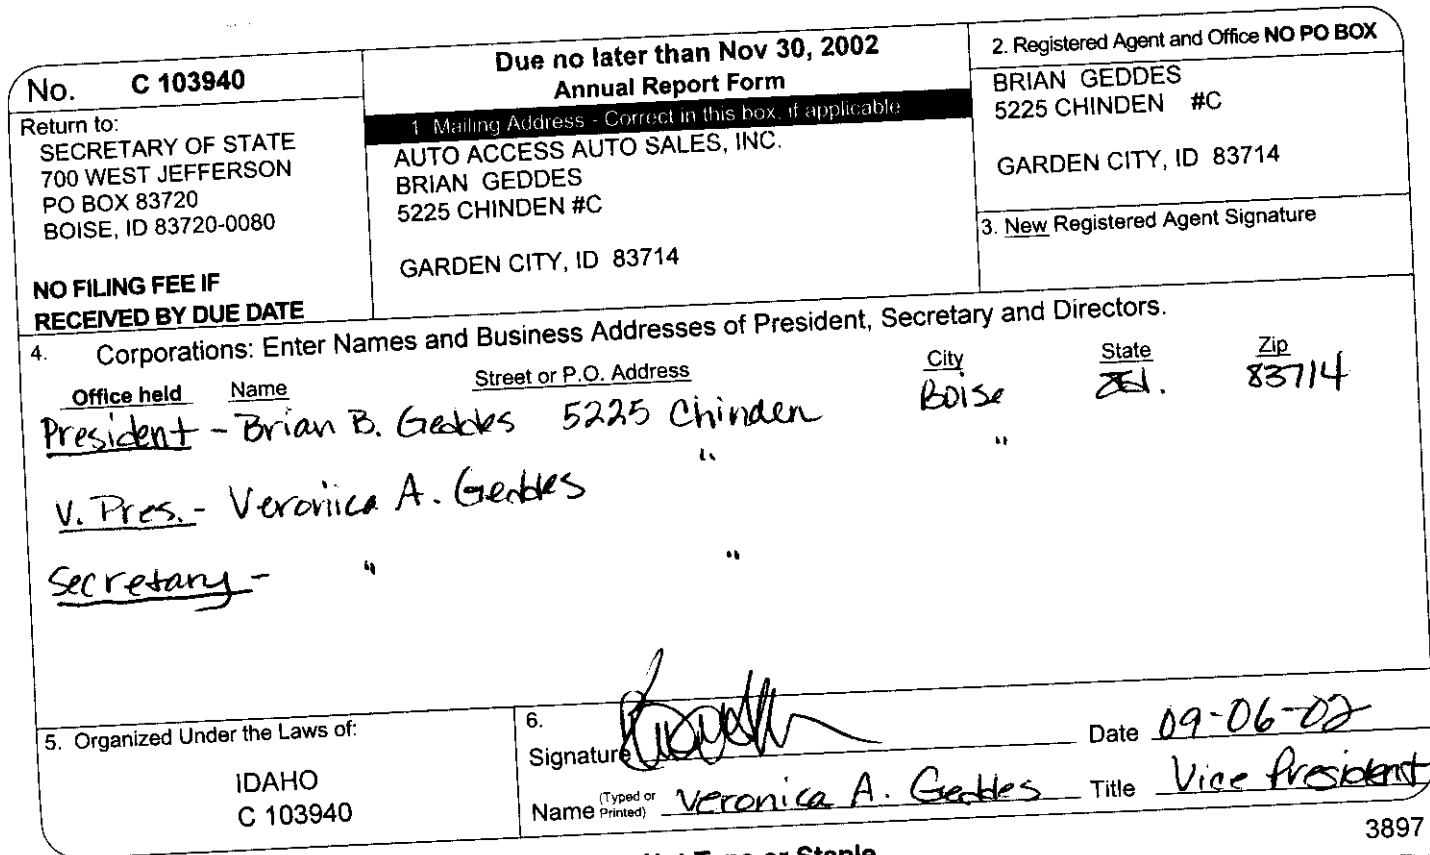 No. C 103940
Return to:
SECRETARY OF STATE
700 WEST JEFFERSON
PO BOX 83720
BOISE, ID 83720-0080
NO FILING FEE IF
RECEIVED BY DUE DATE
Due no later than Nov 30, 2002
Annual Report Form
1 Mailing Address - Correct in this box, if applicable
AUTO ACCESS AUTO SALES, INC.
BRIAN GEDDES
5225 CHINDEN #C
GARDEN CITY, ID 83714
2. Registered Agent and Office NO PO BOX
BRIAN GEDDES
5225 CHINDEN #C
GARDEN CITY, ID 83714
3. New Registered Agent Signature
4. Corporations: Enter Names and Business Addresses of President, Secretary and Directors.
Office held Name Street or P.O. Address City State Zip
President - Brian B. Geddes 5225 Chinden Boise Id. 83714
V. Pres. - Veronica A. Geddes " "
Secretary - " "
5. Organized Under the Laws of:
IDAHO
C 103940
6.
Signature Date 09-06-02
Name (Typed or Printed) Veronica A. Geddes Title Vice President
3897
or Staple